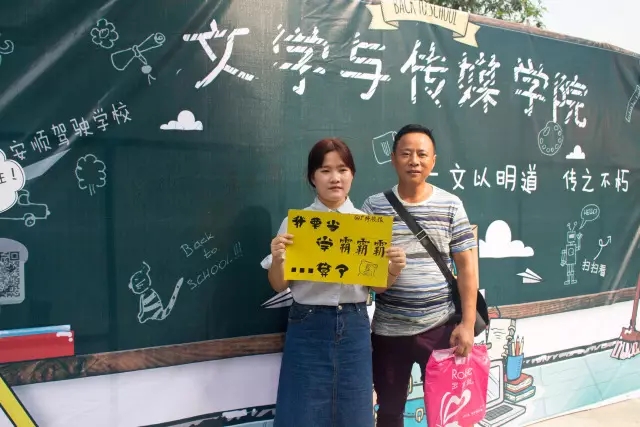 BACK TO SCHOOL
文学与传媒学院
安顺驾驶学校
在!
文以明道 传之不朽
HELLO
Back
to
SCHOOL !!!
扫扫看
我要当
学霸霸霸
算了